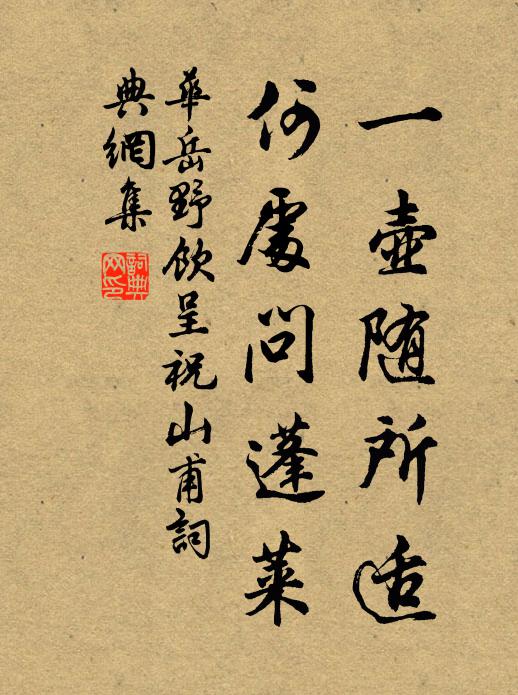 一壺随所适
何處問蓬萊
華岳野飲呈祝山甫詞
典網集
詞典
网印